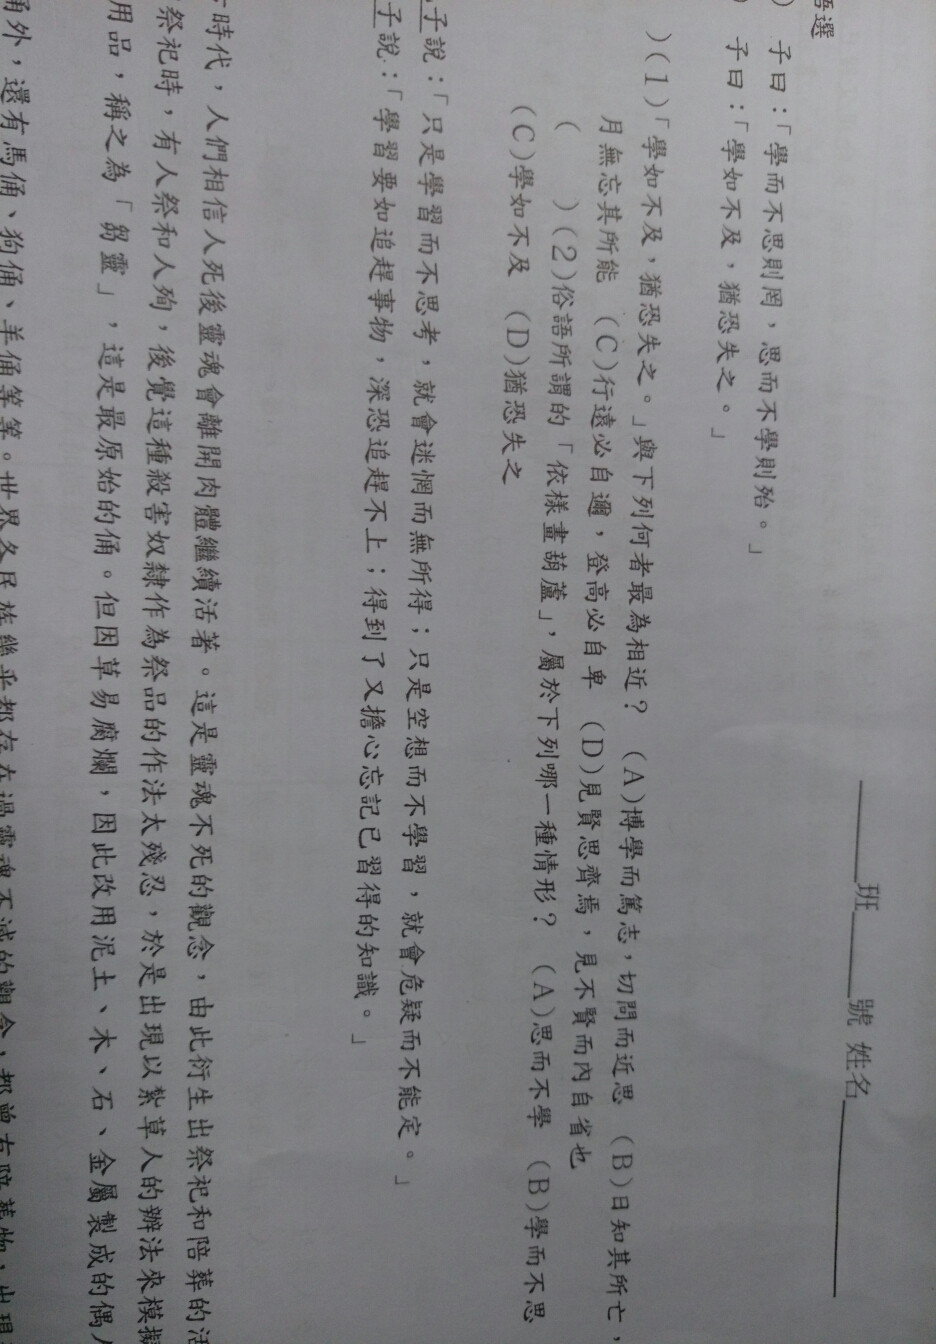 語選
___班___號 姓名______
) 子曰：「學而不思則罔，思而不學則殆。」
) 子曰：「學如不及，猶恐失之。」
)(1)「學如不及，猶恐失之。」與下列何者最為相近？ (A)博學而篤志，切問而近思 (B)日知其所亡，
月無忘其所能 (C)行遠必自邇，登高必自卑 (D)見賢思齊焉，見不賢而內自省也
( )(2)俗語所謂的「依樣畫葫蘆」，屬於下列哪一種情形？ (A)思而不學 (B)學而不思
(C)學如不及 (D)猶恐失之
子說：「只是學習而不思考，就會迷惘而無所得；只是空想而不學習，就會危疑而不能定。」
子說：「學習要如追趕事物，深恐追趕不上；得到了又擔心忘記已習得的知識。」
時代，人們相信人死後靈魂會離開肉體繼續活著。這是靈魂不死的觀念，由此衍生出祭祀和陪葬的活
祭祀時，有人祭和人殉，後覺這種殺害奴隸作為祭品的作法太殘忍，於是出現以紮草人的辦法來模擬
用品，稱之為「芻靈」，這是最原始的俑。但因草易腐爛，因此改用泥土、木、石、金屬製成的偶人
俑外，還有馬俑、狗俑、羊俑等等。世界各民族幾乎都存在過靈魂不滅的觀念，都曾有陪葬物，出現